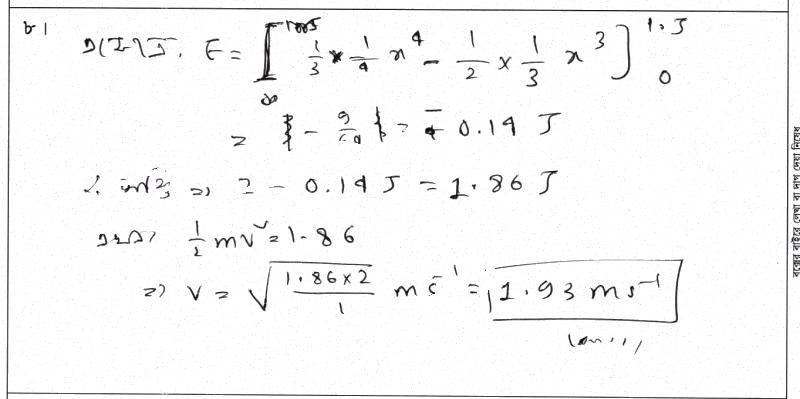 ৮।
E = [ 1/3 × 1/4 x⁴ - 1/2 × 1/3 x³ ]₀^1.5
= { - 9/64 } = - 0.14 J
⇒ 2 - 0.14 J = 1.86 J
1/2 mv² = 1.86
⇒ v = √(1.86×2 / 1) ms⁻¹ = 1.93 ms⁻¹
বক্সের বাইরে লেখা বা দাগ দেয়া নিষেধ